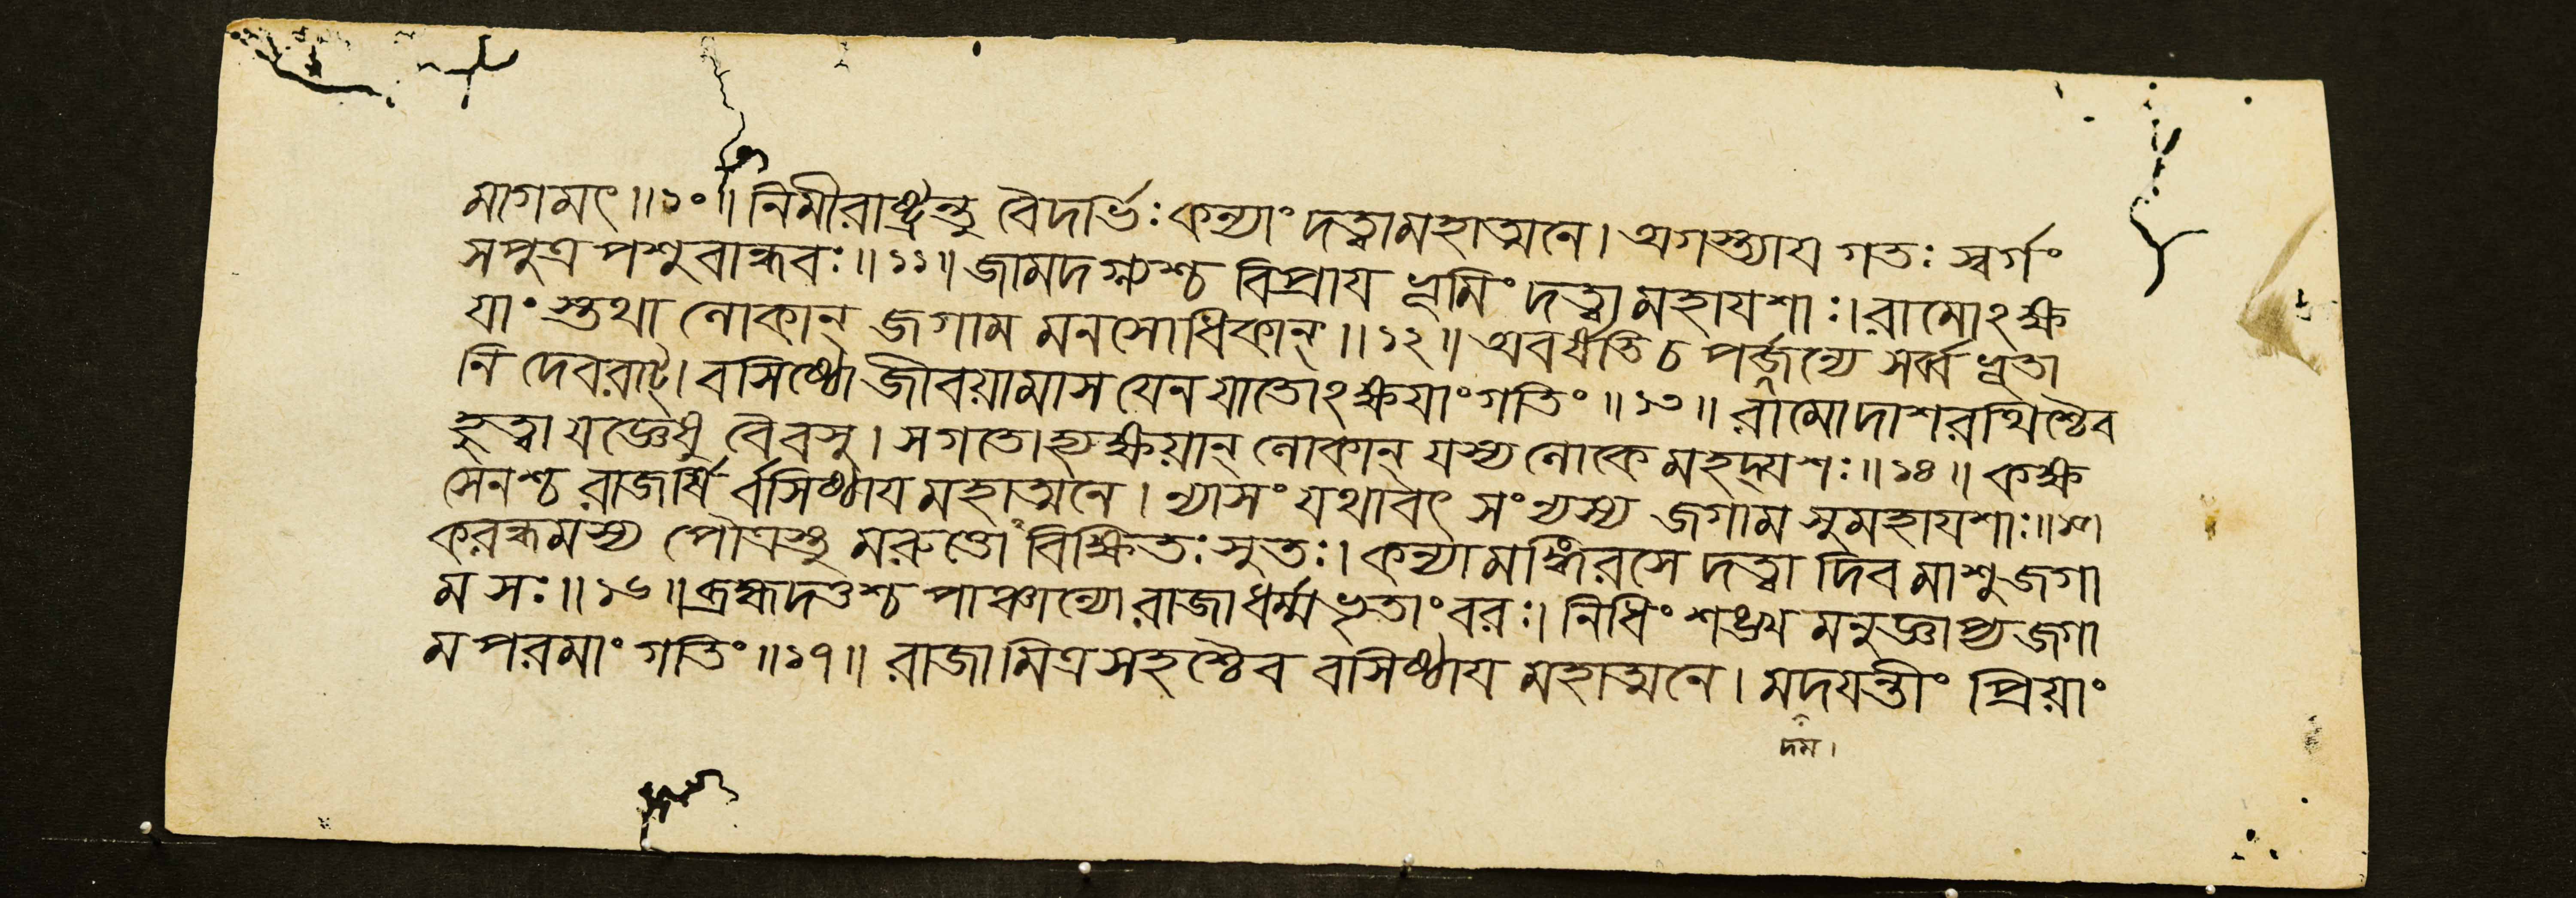 মাগমৎ॥১০॥নিমীরাষ্ট্রন্তু বৈদার্ভঃকন্যাং দত্বামহাত্মনে।অগস্ত্যায গতঃ স্বর্গং
সপুত্রপশুবান্ধবঃ॥১১॥জামদগ্ন্যশ্চ বিপ্রায ভূমিং দত্ত্বামহাযশাঃ।রামোঽক্ষ
যাংস্তথা লোকান্ জগাম মনসোধিকান্॥১২॥অবর্ষতি চ পর্জ্জন্যে সর্ব্বভূতা
নি দেবরাট্।বসিষ্ঠো জীবয়ামাস যেনযাতোঽক্ষযাংগতিং॥১৩॥রামোদাশরথিশ্চৈব
হুত্বা যজ্ঞেষু বৈবসু।সগতোহ্যক্ষয়ান্ লোকান্ যস্যলোকে মহদ্যশঃ॥১৪॥কক্ষ
সেনশ্চ রাজর্ষি র্বসিষ্ঠায মহাত্মনে।ন্যাসং যথাবৎ সংন্যস্য জগাম সুমহাযশাঃ॥১৫।
করন্ধমস্য পৌত্রস্তু মরুত্তো বিক্ষিতঃসুতঃ।কন্যামঙ্গিরসে দত্বা দিবমাশুজগা
ম সঃ॥১৬॥ব্রহ্মদত্তশ্চ পাঞ্চাল্যোরাজাধর্ম্মভৃতাংবরঃ।নিধিং শঙ্খমনুজ্ঞাপ্যজগা
ম পরমাং গতিং॥১৭॥ রাজামিত্রসহশ্চৈব বসিষ্ঠায মহাত্মনে।মদযন্তীং প্রিয়াং
দম।